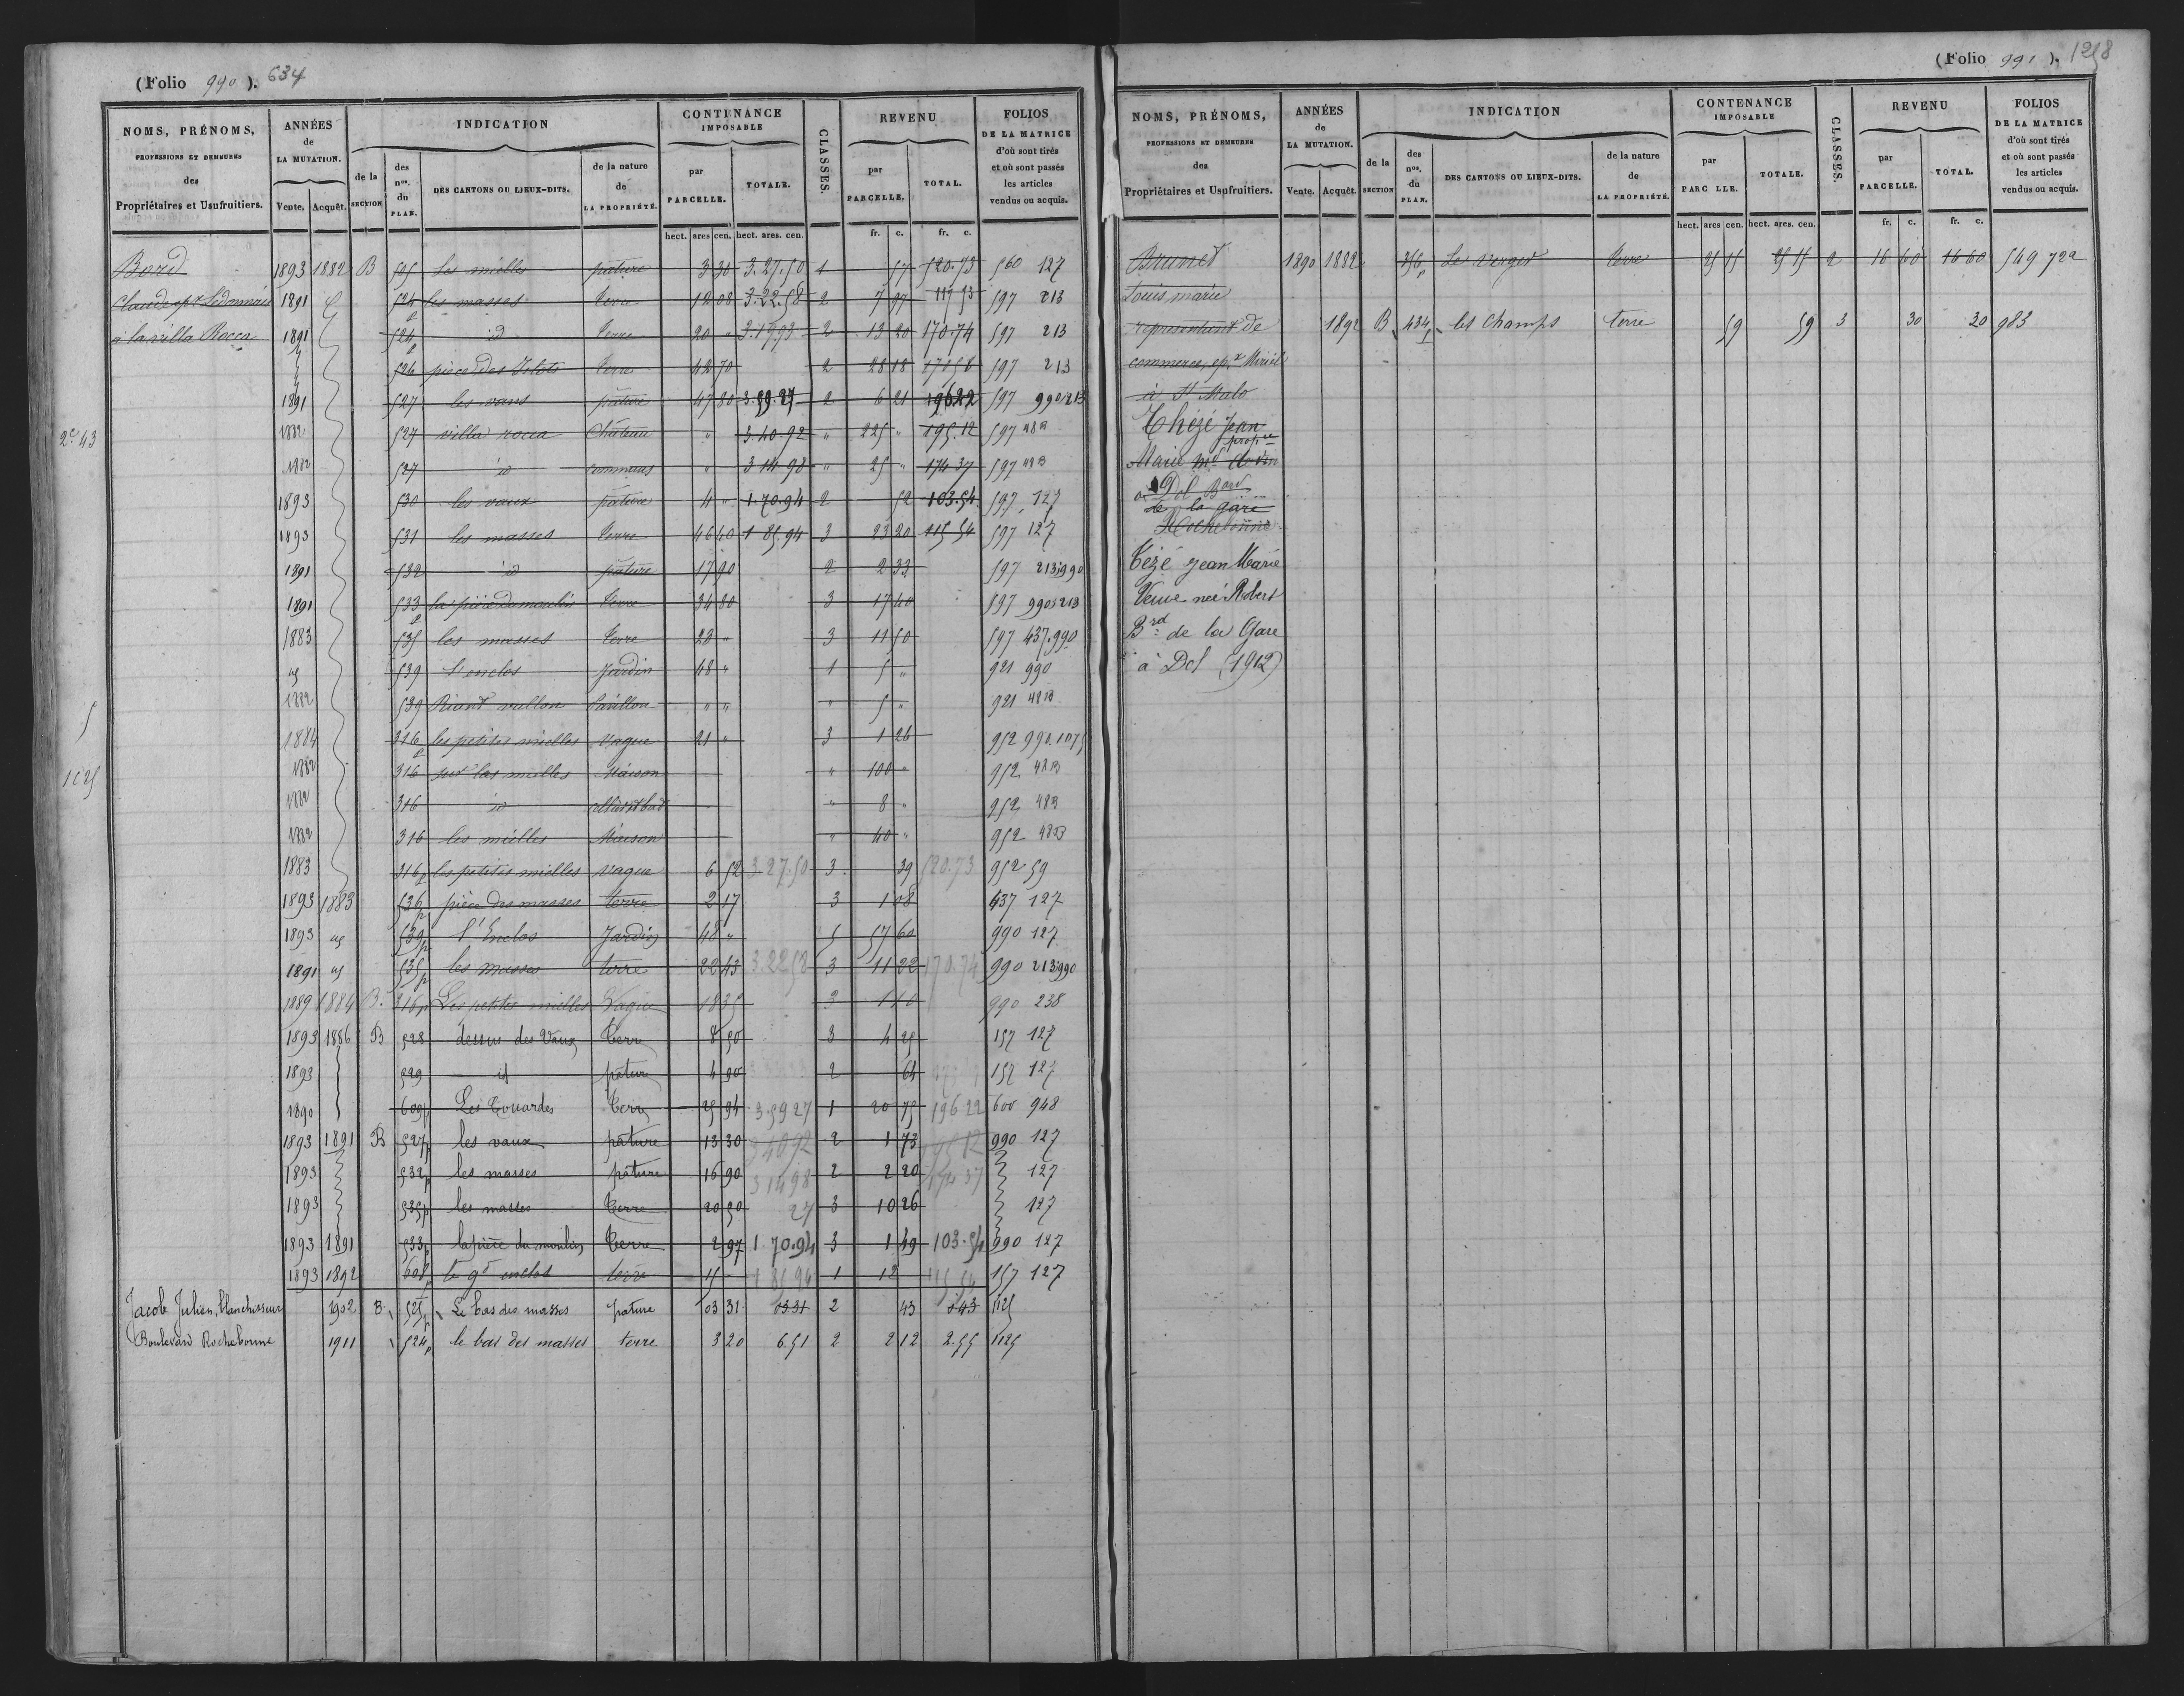 (Folio 990). 634
NOMS, PRÉNOMS, PROFESSIONS ET DEMEURES des Propriétaires et Usufruitiers.
ANNÉES de LA MUTATION. Vente. Acquêt.
INDICATION de la SECTION des nos. du PLAN. DES CANTONS OU LIEUX-DITS. de la nature de LA PROPRIÉTÉ.
CONTENANCE IMPOSABLE par PARCELLE. TOTALE.
CLASSES.
REVENU par PARCELLE. TOTAL.
FOLIOS DE LA MATRICE d'où sont tirés et où sont passés les articles vendus ou acquis.
hect. ares cen. hect. ares. cen. fr. c. fr. c.
Bord 1893 1882 B 505 Les mielles pature 3 30 3.27.50 1 57 520.73 560 127
Claude epx Lidonnais 1891 524p les masses terre 12 08 3.22.58 2 7 97 119 53 597 213
à la villa Rocca 1891 524p id terre 20 " 3.17.93 2 13 20 170.74 597 213
526 pièce des Islots terre 42 70 2 28 18 170 56 597 213
1891 527 les vaux pature 47 80 3.59.27 2 6 21 196.22 597 990 213
2e 43
1882 527 villa rocca Château " 3.40.92 " 225 " 195.12 597 48B
1882 527 id communs " 3 14 98 " 25 " 174 37 597 48B
1893 530 les vaux pature 4 " 1.70.94 2 52 103.54 597 127
1893 531 les masses terre 46 40 1 85.94 3 23 20 115 54 597 127
1891 532 id pature 17 90 2 2 33 597 213 990
1891 533p la pièce du moulin terre 34 80 3 17 40 597 990 213
1883 535 les masses terre 23 " 3 11 50 597 437.990
us 539 l'enclos Jardin 48 " 1 5 " 921 990
1882 539 Riant vallon Pavillon " " " 5 " 921 48B
5
1884 316p les petites mielles Vague 21 " 3 1 26 952 990.1075
1025
1882 316 les mielles Maison " 100 " 952 48B
1882 316 id " 8 " 952 48B
1882 316 les mielles Maison " 40 " 952 48B
1883 316p les petites mielles vague 6 52 3.27.50 3 39 520.73 952 59
1893 1883 536p pièce des masses terre 2 17 3 1 08 437 127
1893 us 539p l'Enclos Jardin 48 " 5 57 60 990 127
1891 us 535p les masses terre 22 43 3.22.58 3 11 22 170.74 990 213 990
1889 1884 B. 316p Les petites mielles Vague 18 35 3 1 10 990 238
1893 1886 B 528 dessus des Vaux terre 8 50 3 4 25 157 127
1893 529 id pature 4 90 2 64 157 127
1890 609p Les Couardes terre 25 94 3.59 27 1 20 75 196 22 600 948
1893 1891 B 527p les vaux pature 13 30 3 40 92 2 1 73 195 12 990 127
1893 532p les masses pature 16 90 3 14 98 2 2 20 174 37 127
1893 535p les masses terre 20 50 27 3 10 26 127
1893 1891 533p la pièce du moulin terre 2 97 1.70.94 3 1 49 103.54 990 127
1893 1892 608p le gd enclos terre 15 1 85 94 1 12 115 54 157 127
Jacob Julien, blanchisseur 1902 B. 525p Le bas des masses pature 03 31 03 31 2 43 0 43 1125
Boulevard Rochebonne 1911 524p le bas des masses terre 3 20 6.51 2 2 12 2.55 1125
(Folio 991). 1258
NOMS, PRÉNOMS, PROFESSIONS ET DEMEURES des Propriétaires et Usufruitiers.
ANNÉES de LA MUTATION. Vente. Acquêt.
INDICATION de la SECTION des nos. du PLAN. DES CANTONS OU LIEUX-DITS. de la nature de LA PROPRIÉTÉ.
CONTENANCE IMPOSABLE par PARC LLE. TOTALE.
CLASSES.
REVENU par PARCELLE. TOTAL.
FOLIOS DE LA MATRICE d'où sont tirés et où sont passés les articles vendus ou acquis.
hect. ares cen. hect. ares. cen. fr. c. fr. c.
Brunet 1890 1882 256p Le verger terre 25 15 25 15 2 16 60 16 60 549 722
Louis marie
représentant de 1892 B 434p les Champs terre 59 59 3 30 30 983
commerce, epx Miriel
à St Malo
Thézé Jean
propre
Marie Md de vin
à Dol Bard
de la gare
Rochebonne
Tézé Jean Marie
Veuve née Robert
Brd de la Gare
à Dol (1912)